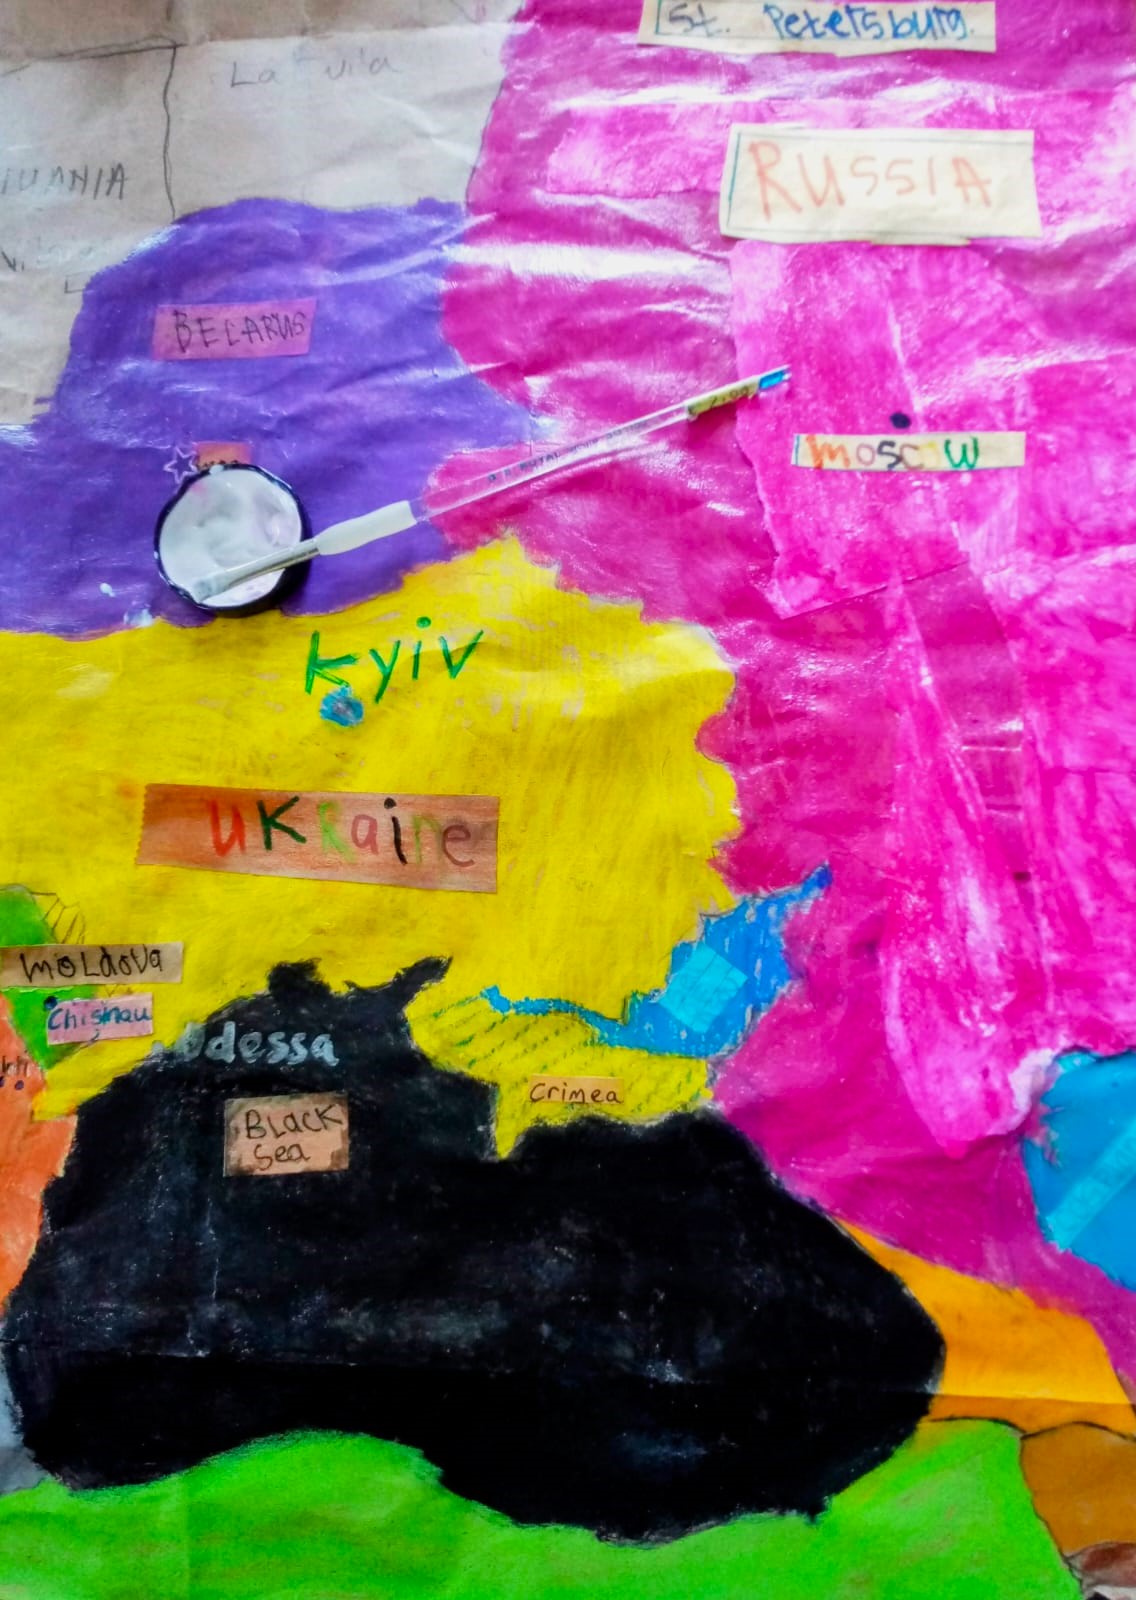 St. Petersburg.
Latvia
RUSSIA
IUANIA
BELARUS
2.99
moscow
Kyiv
UKRaine
MoLdova
Chisinau
Odessa
Crimea
BLack
Sea